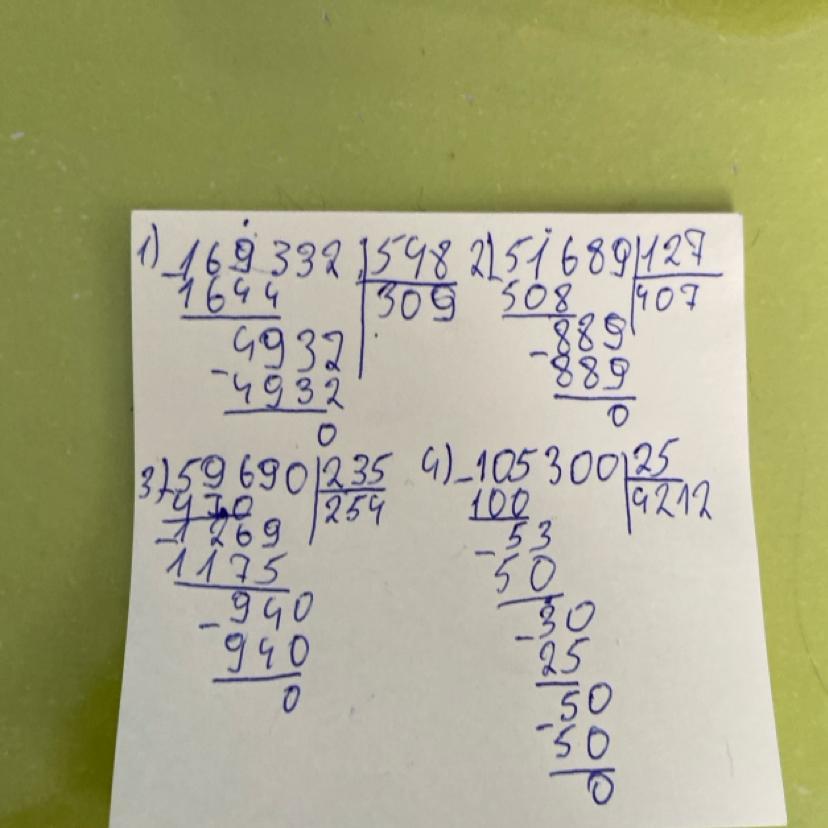 1) -169332 | 548
1644 | 309
4932
-4932
0
2) -51689 | 127
508 | 407
889
-889
0
3) -59690 | 235
470 | 254
-1269
1175
-940
940
0
4) -105300 | 25
100 | 4212
-53
50
-30
25
50
-50
0